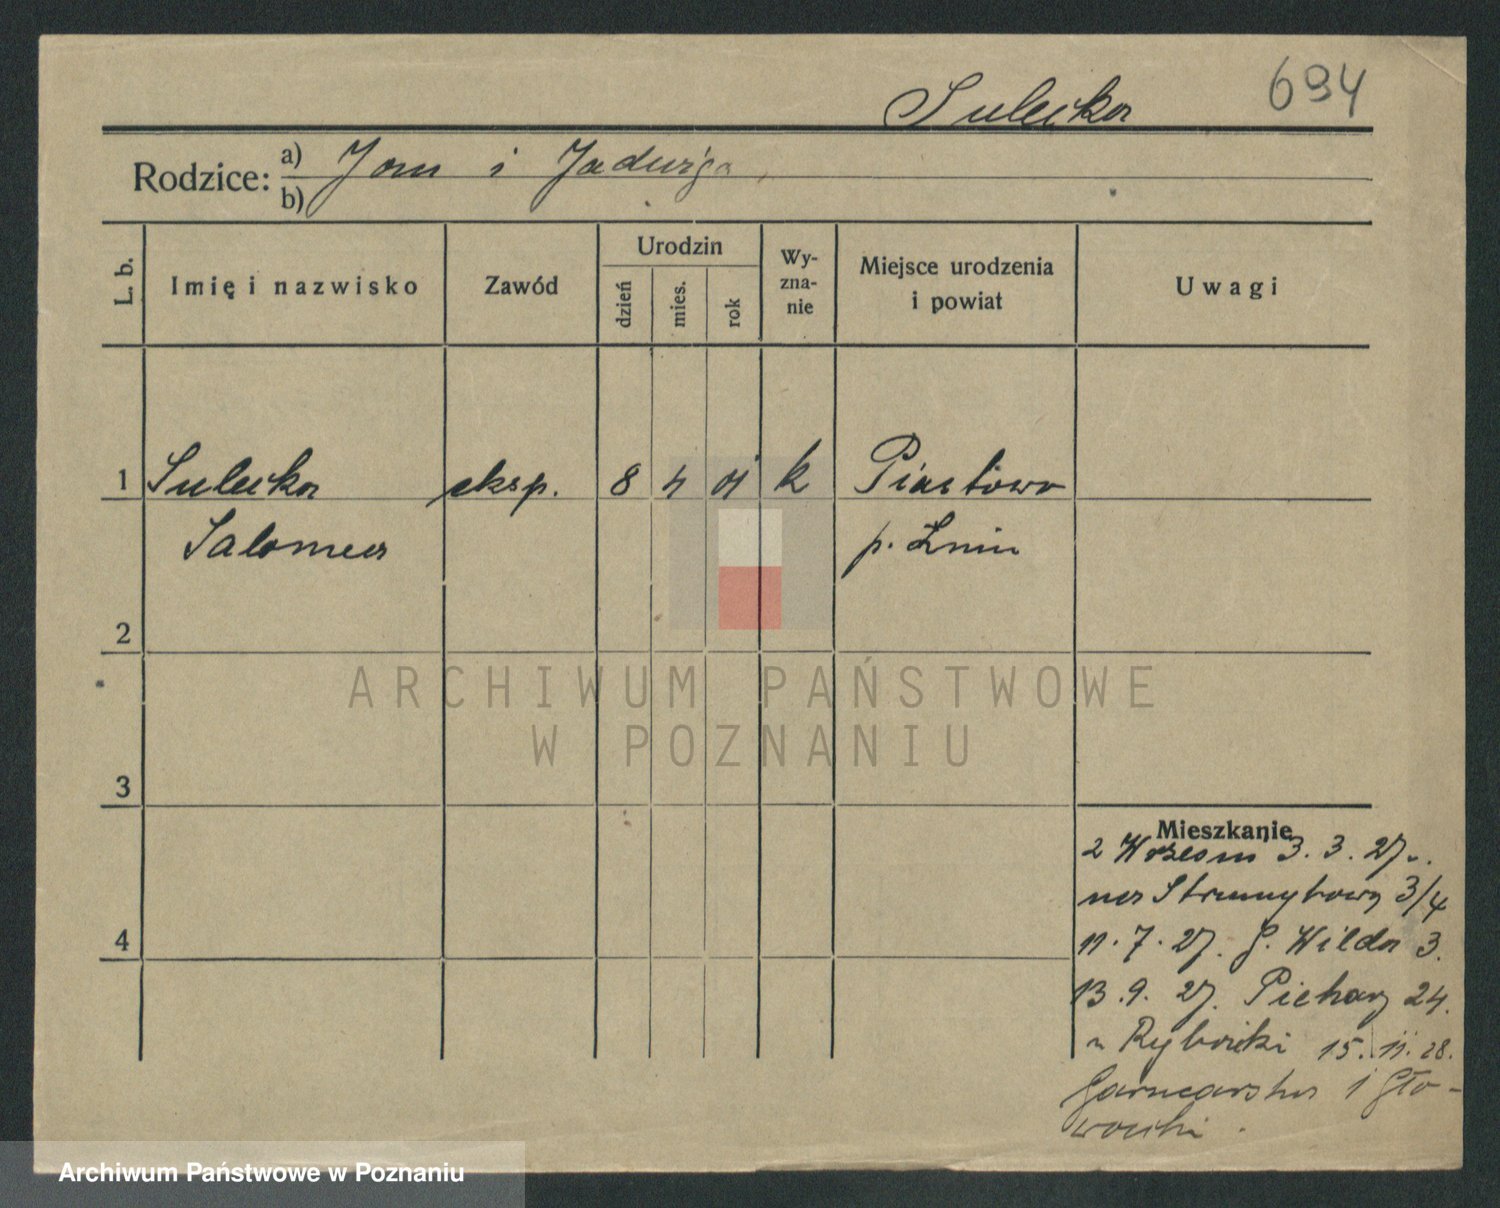 Sulecka
694
Rodzice: a) Jan i Jadwiga
b)
L. b.
Imię i nazwisko
Zawód
Urodzin
dzień
mies.
rok
Wy-
zna-
nie
Miejsce urodzenia
i powiat
Uwagi
1 Sulecka eksp. 8 4 01 k Piastowo
Salomea p. Żnin
2
ARCHIWUM PAŃSTWOWE
W POZNANIU
3
Mieszkanie
z Wrześni 3. 3. 27.
3/4
11. 7. 27. G. Wilda 3.
13. 9. 27. Piekary 24.
u Rybicki 15. 11. 28.
Garncarska 1 Gło-
wacki.
4
Archiwum Państwowe w Poznaniu